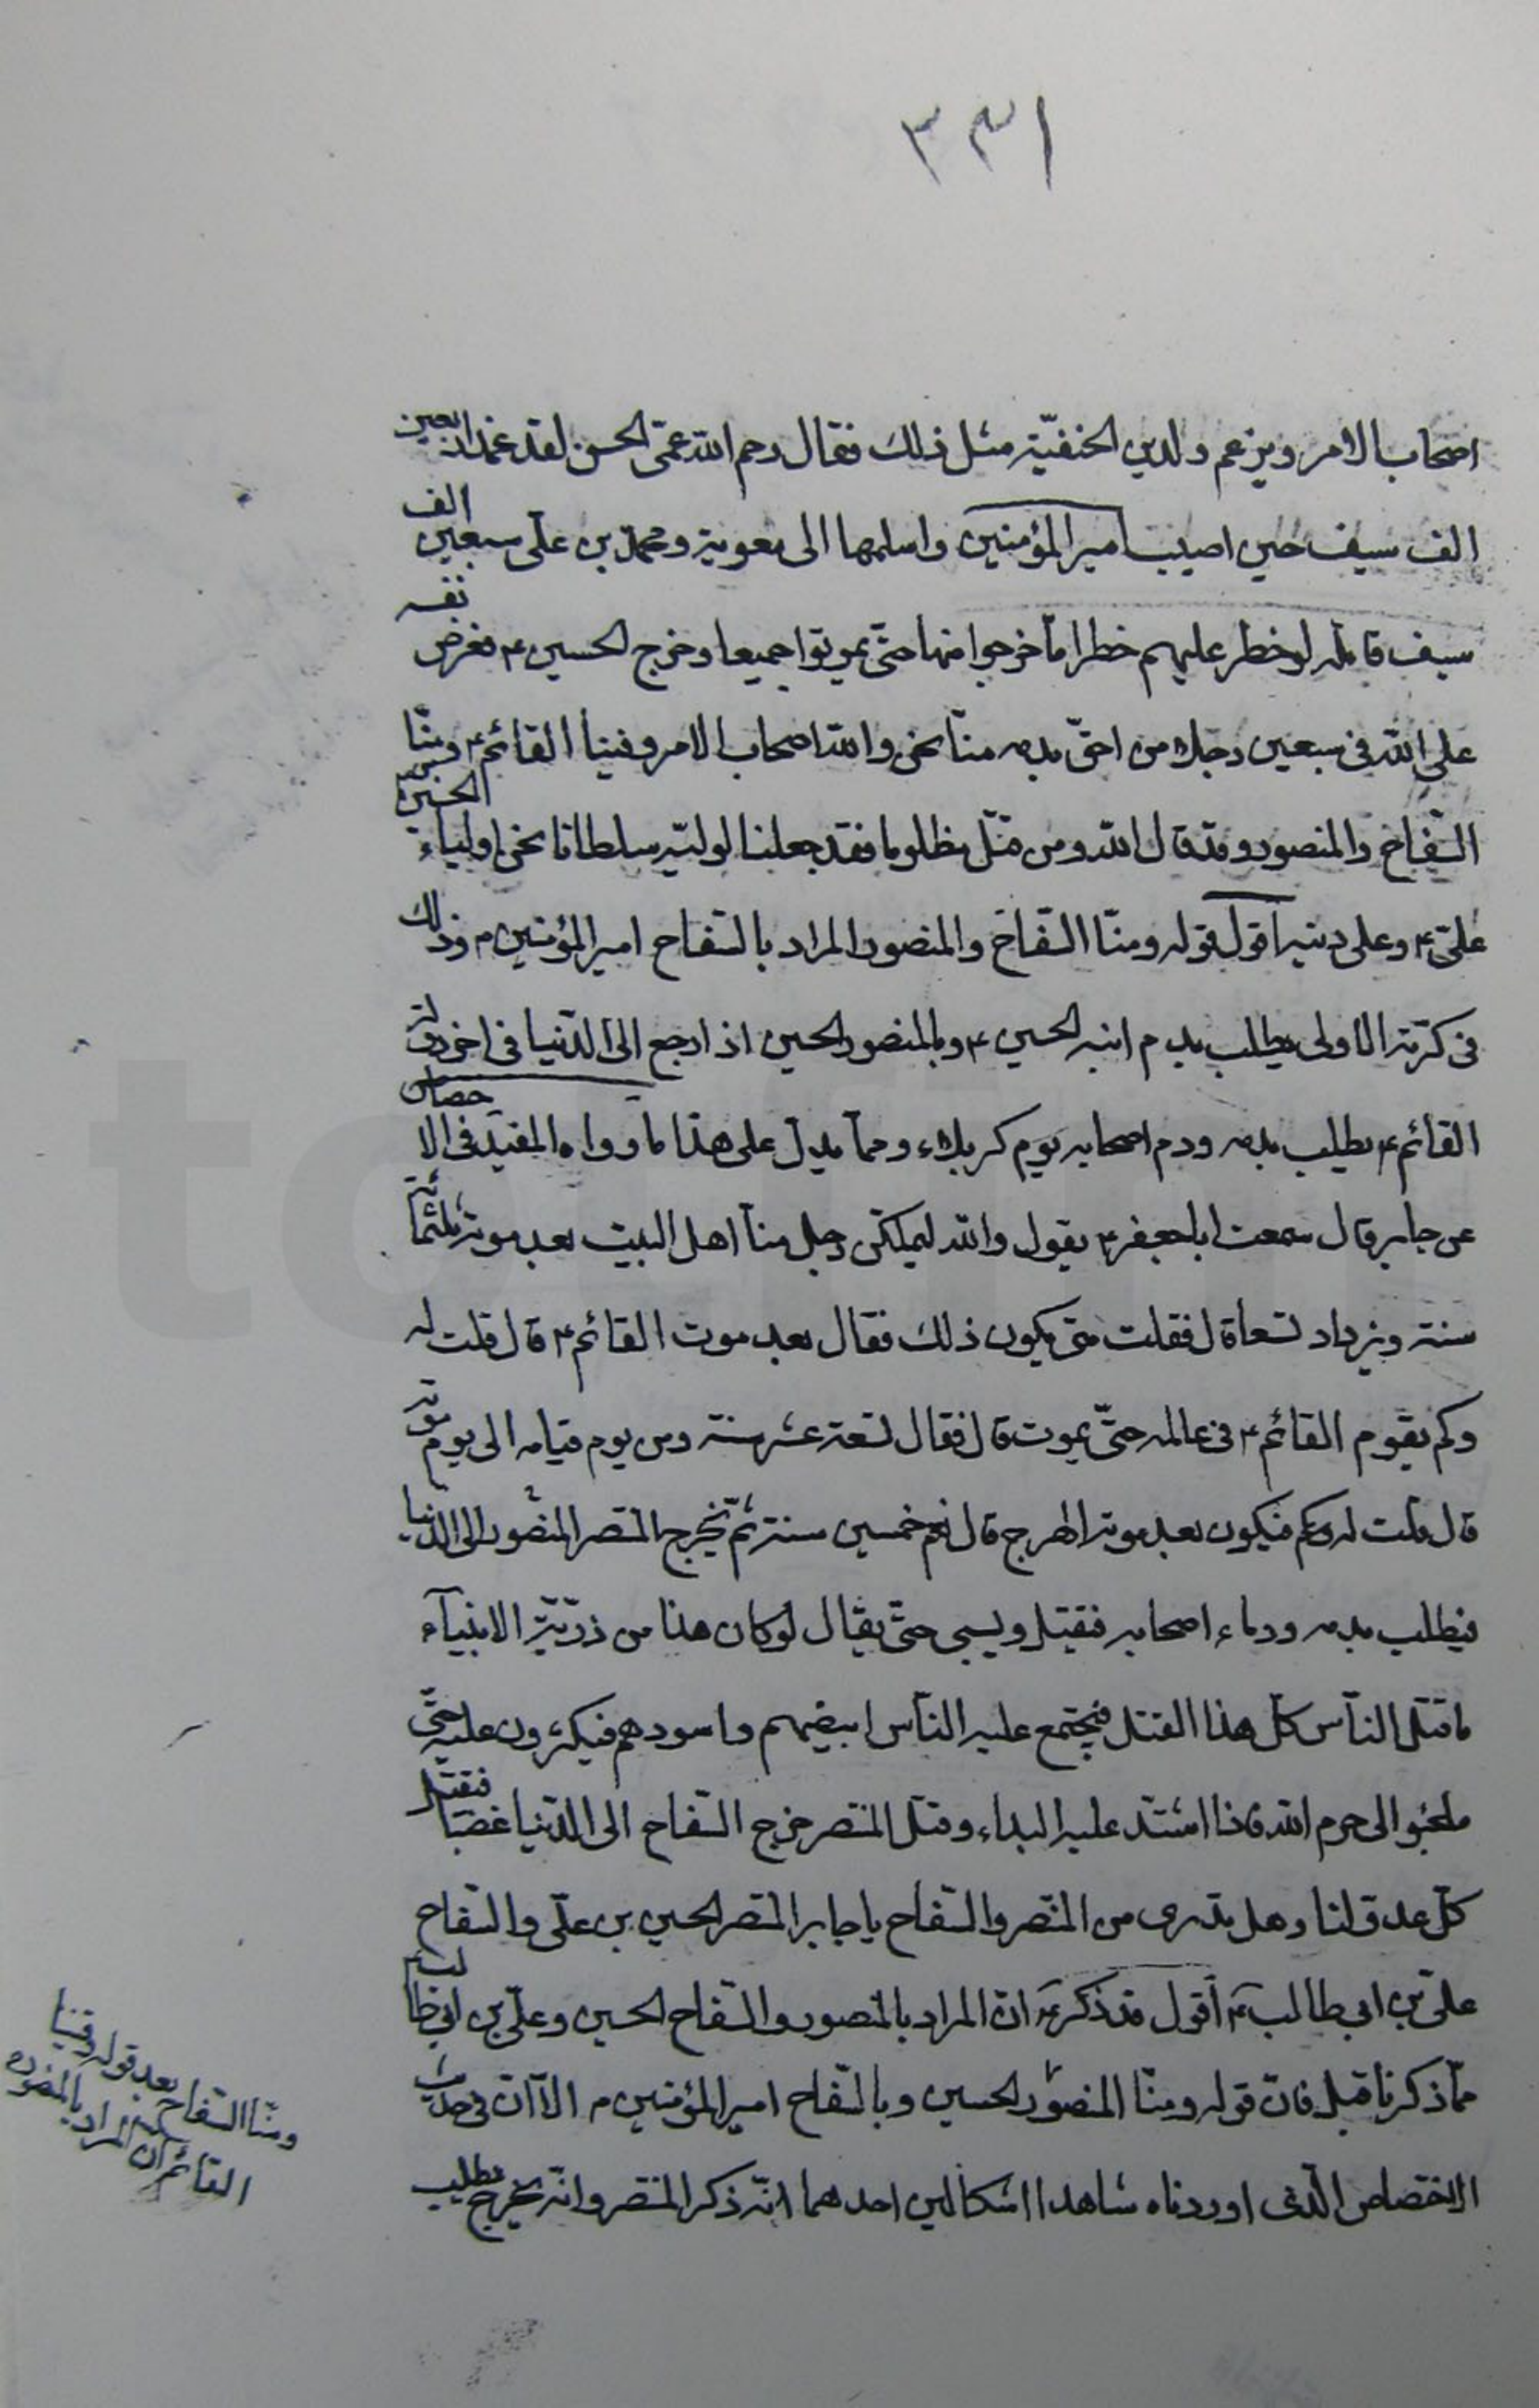 ٣٣١
اصحاب الامر ويزعم ولد ابن الحنفيّة مثل ذلك فقال رحم الله عمّى الحسن لقد غمد اربعين
الف سيف حين اصيب امير المؤمنين واسلمها الى معوية ومحمد بن علّى سبعين الف
سيف قاتله لو خطر عليهم خطر اما خرجوا منها حتّى يموتوا جميعا وخرج الحسين ع فعرض نفسه
على الله فى سبعين رجلا من احقّ بدمه منّا نحن والله اصحاب الامر وفينا القائم ع ومنّا
السّفاح والمنصور وقد قال الله ومن قتل مظلوما فقد جعلنا لوليّه سلطانا نحن اولياء الحسين بن
علىّ ع وعلى دينه اقول قوله ومنّا السّفاح والمنصور المراد بالسّفاح امير المؤمنين م وذلك
فى كرّته الاولى يطلب بدم ابنه الحسين ع وبالمنصور الحسين اذا رجع الى الدّنيا فى اخر دولة
القائم ع يطلب بدمه ودم اصحابه يوم كربلاء وممّا يدلّ على هذا ما رواه المفيد فى الاختصاص
عن جابر قال سمعت ابا جعفر ع يقول والله ليملكنّ رجل منّا اهل البيت بعد موته ثلثمائة
سنة ويزداد تسعا قال فقلت متى يكون ذلك فقال بعد موت القائم ع قال قلت له
وكم يقوم القائم ع فى عالمه حتّى يموت قال فقال تسعة عشر سنة ومن يوم قيامه الى يوم موته
قال قلت له وكم فيكون بعد موته الهرج قال نعم خمسين سنة ثمّ يخرج المنتصر المنصور الى الدّنيا
فيطلب بدمه ودماء اصحابه فيقتل ويسبى حتّى يقال لو كان هذا من ذرّيّة الانبيآء
ما قتل النّاس كلّ هذا القتل فيجتمع عليه النّاس ابيضهم واسودهم فيكثرون عليه حتّى
يلجئوا الى حرم الله فاذا اشتدّ عليه البلاء وقتل المنتصر خرج السّفاح الى الدّنيا غضبا فيقتل
كلّ عدوّ لنا وهل تدرى من المنتصر والسّفاح يا جابر المنتصر الحسين بن علّى والسّفاح
علىّ بن ابى طالب ع أقول قد ذكر ع انّ المراد بالمنصور والسّفاح الحسين وعلىّ بن ابى طالب
ممّا ذكرنا قبل فانّ قوله ومنّا المنصور الحسين وبالسّفاح امير المؤمنين م الّا انّ فى حديث
الاختصاص الّذى اوردناه شاهدا اشكالين احدهما انّه ذكر المنتصر وانّه يخرج يطلب
ومنّا السّفاح بعد قوله وفينا
القائم انّ المراد بالمنصور